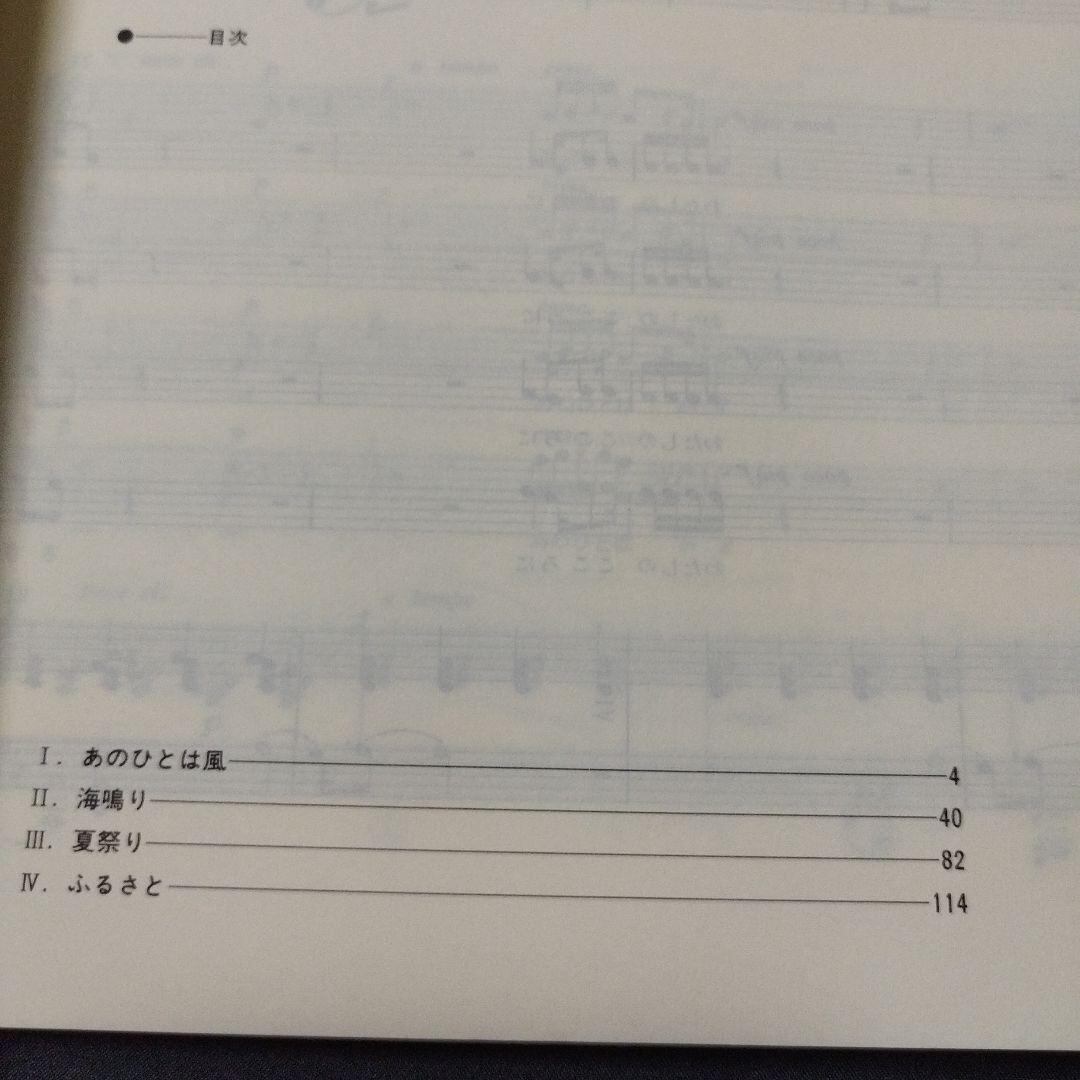 目次
Ⅰ. あのひとは風 4
Ⅱ. 海鳴り 40
Ⅲ. 夏祭り 82
Ⅳ. ふるさと 114